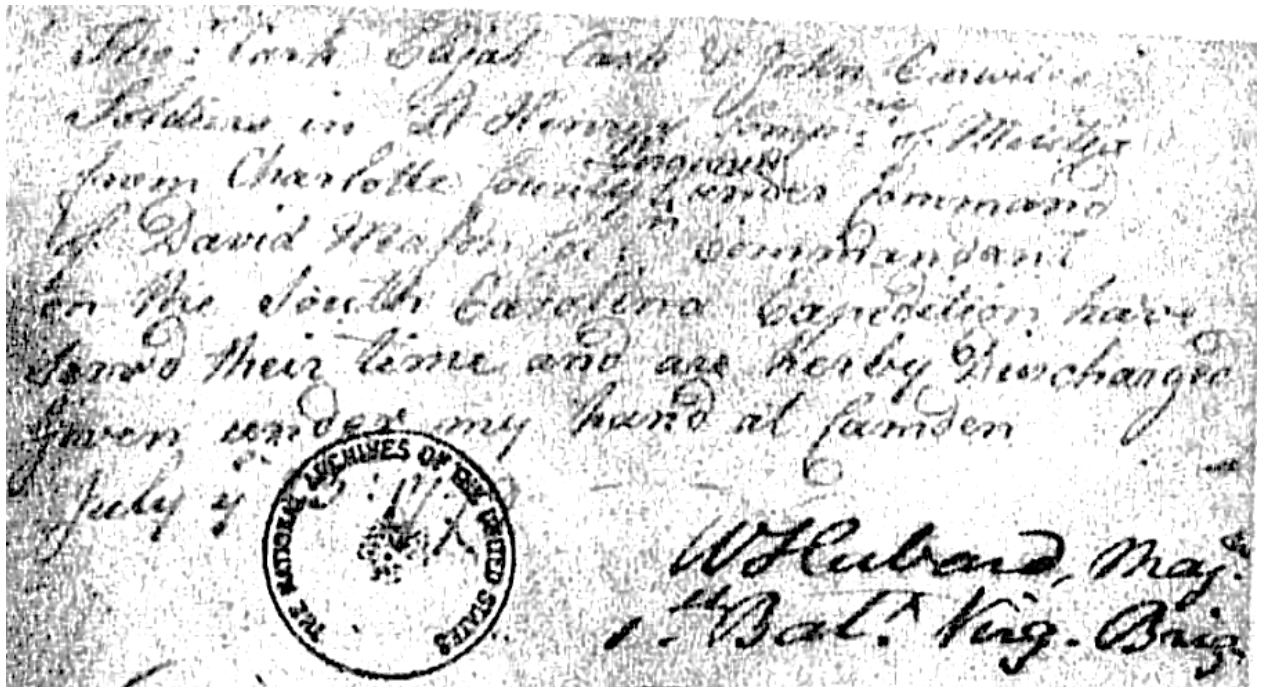 Tho: Cash Elijah Cash & John
Soldiers in Henrys Comp of Militia
Virginia
from Charlotte County under Command
of David Mason Commandant
on the South Carolina Expedition have
Served their time and are herby Discharged
Given under my hand at Camden
July 4
THE NATIONAL ARCHIVES OF THE UNITED STATES
W Hubard, Maj.
1st Bal. Virg. Brig.